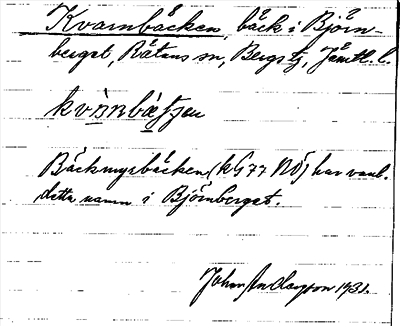 Kvarnbäcken, bäck i Björn-
berget, Rätans sn, Bergs tg, Jämtl. l.
kvɑ̀ṇbɛ̀tʃen
Bäckmyrbäcken (kG77 NÖ) har vanl.
detta namn i Björnberget.
1931.